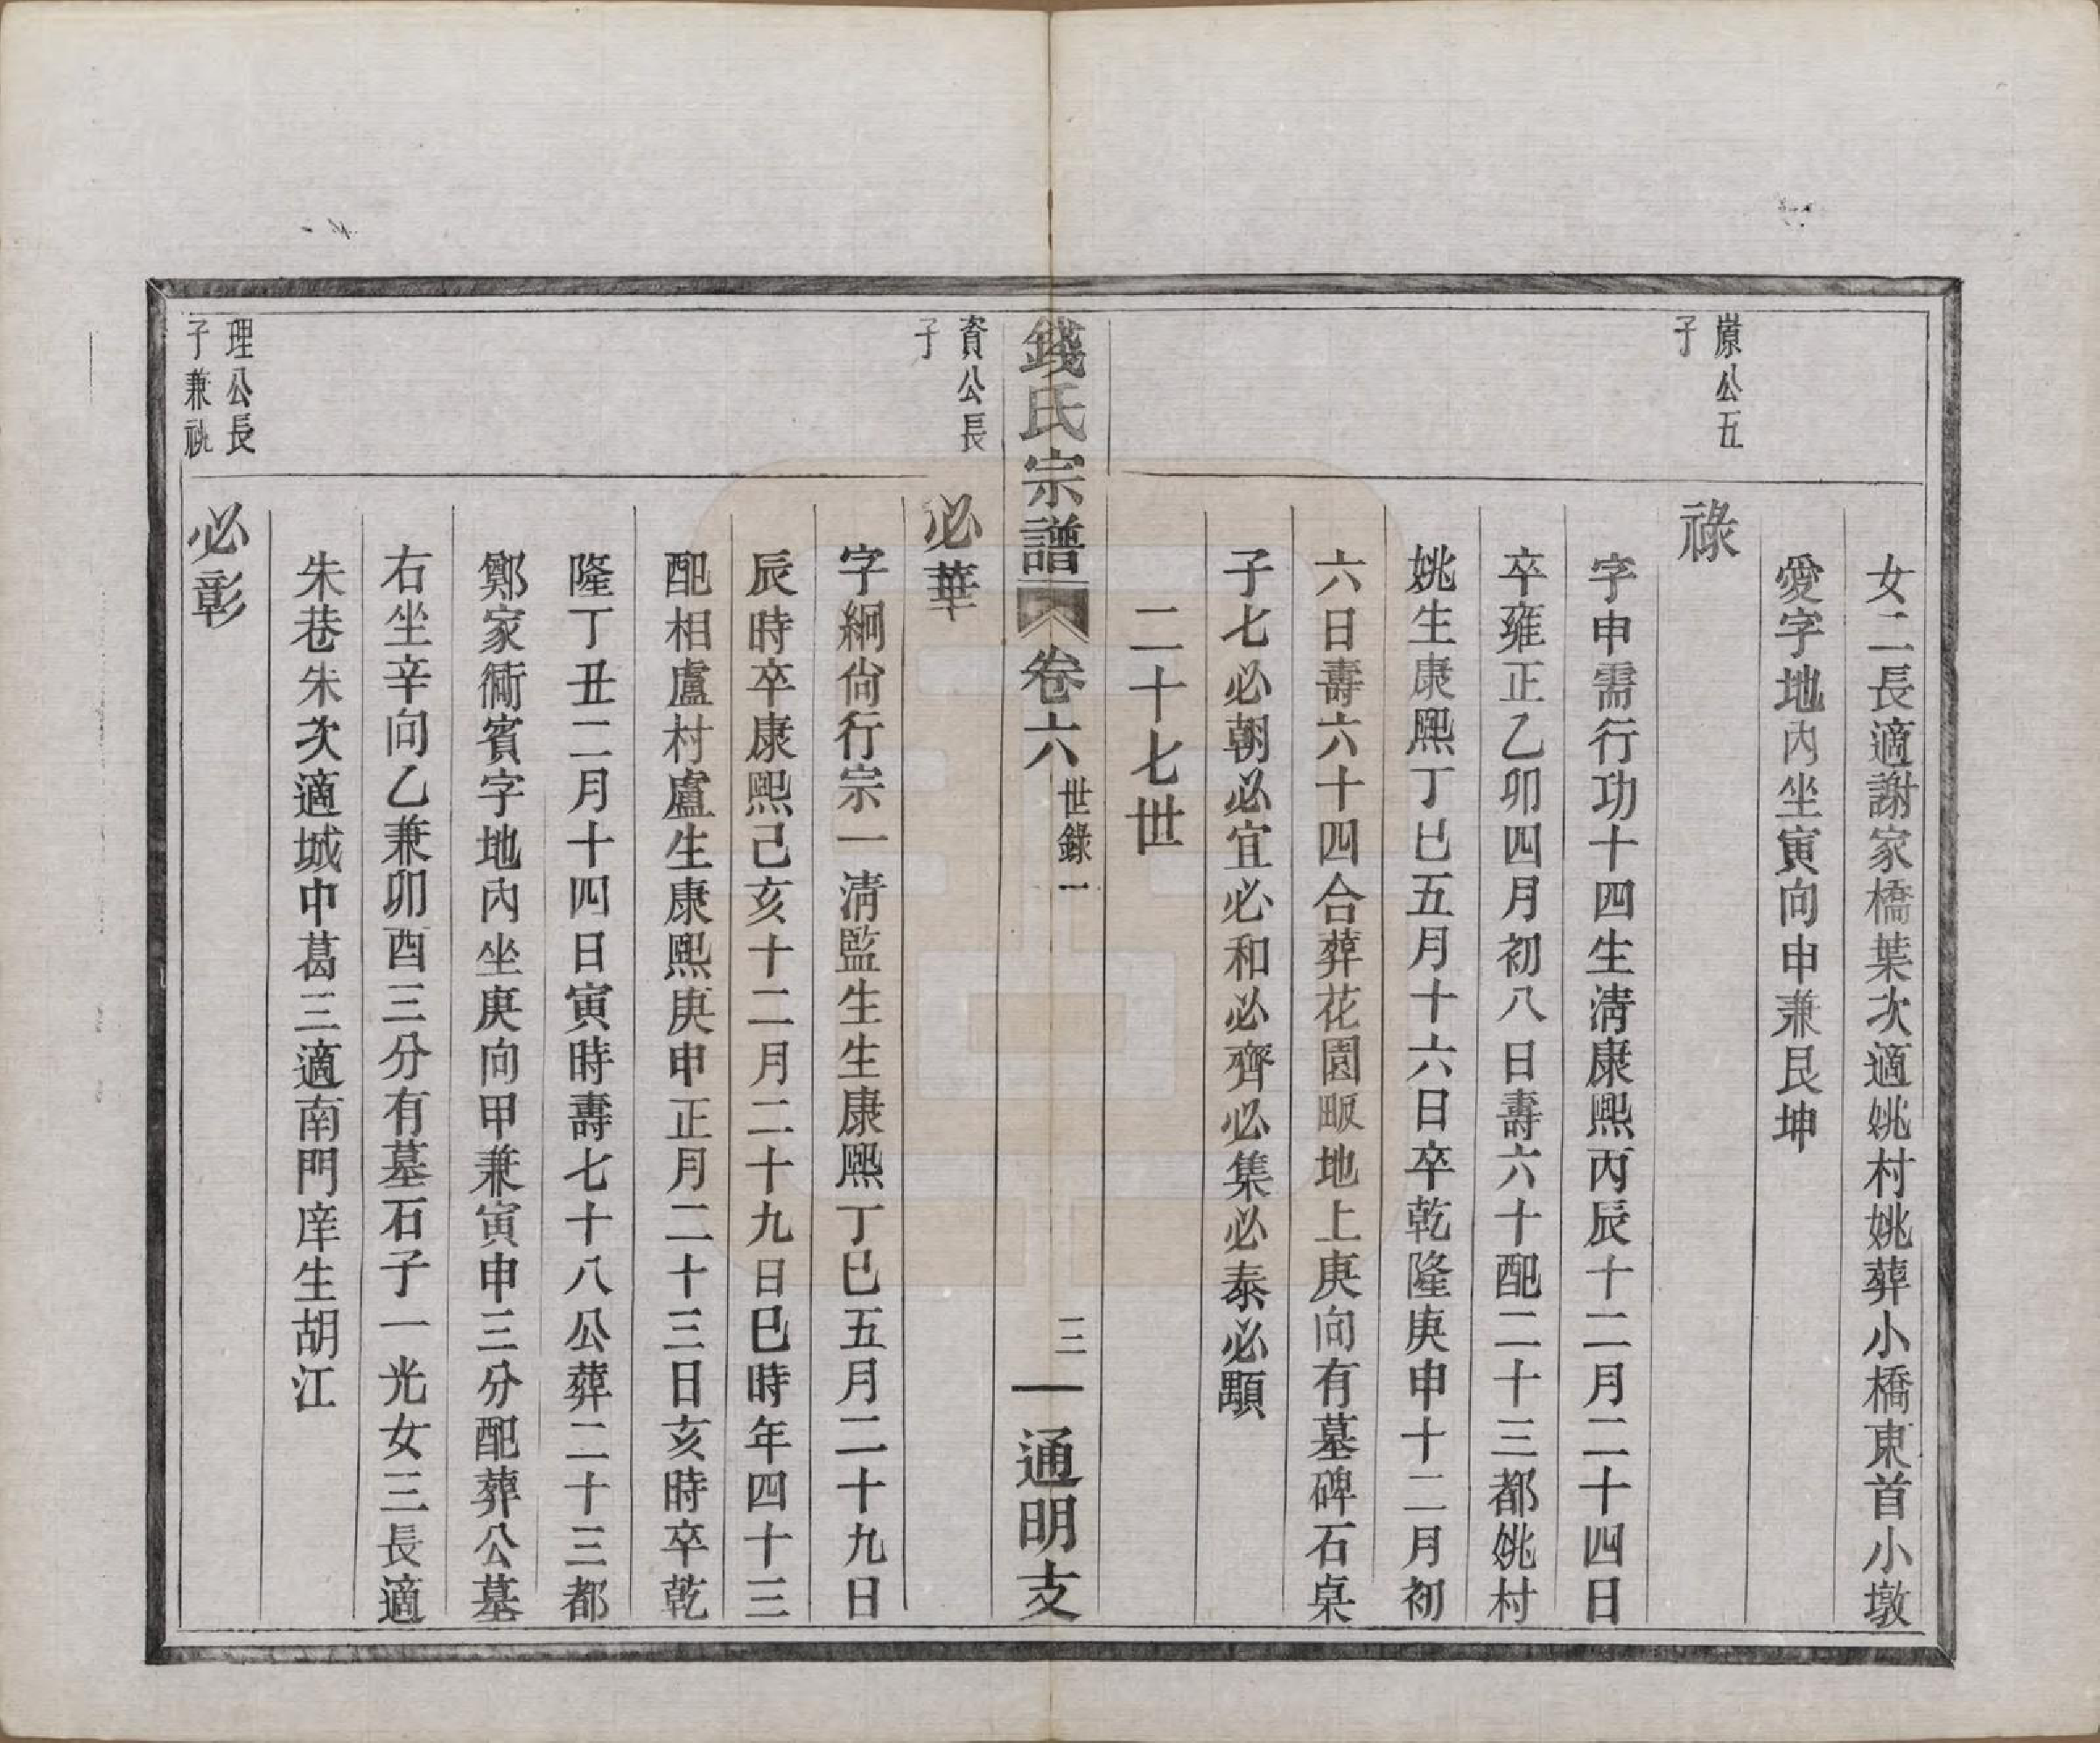 女二長適謝家橋葉次適姚村姚葬小橋東首小墩
愛字地內坐寅向申兼艮坤
原公五
子
祿
字申需行功十四生淸康熙丙辰十二月二十四日
卒雍正乙卯四月初八日壽六十配二十三都姚村
姚生康熙丁巳五月十六日卒乾隆庚申十二月初
六日壽六十四合葬花園畈地上庚向有墓碑石桌
子七必朝必宜必和必齊必集必泰必顯
二十七世
錢氏宗譜
卷六
世錄一
三
通明支
資公長
子
必華
字絅尙行宗一淸監生生康熙丁巳五月二十九日
辰時卒康熙己亥十二月二十九日巳時年四十三
配相盧村盧生康熙庚申正月二十三日亥時卒乾
隆丁丑二月十四日寅時壽七十八公葬二十三都
鄭家衕賓字地內坐庚向甲兼寅申三分配葬公墓
右坐辛向乙兼卯酉三分有墓石子一光女三長適
朱巷朱次適城中葛三適南門庠生胡江
理公長
子兼祧
必彰